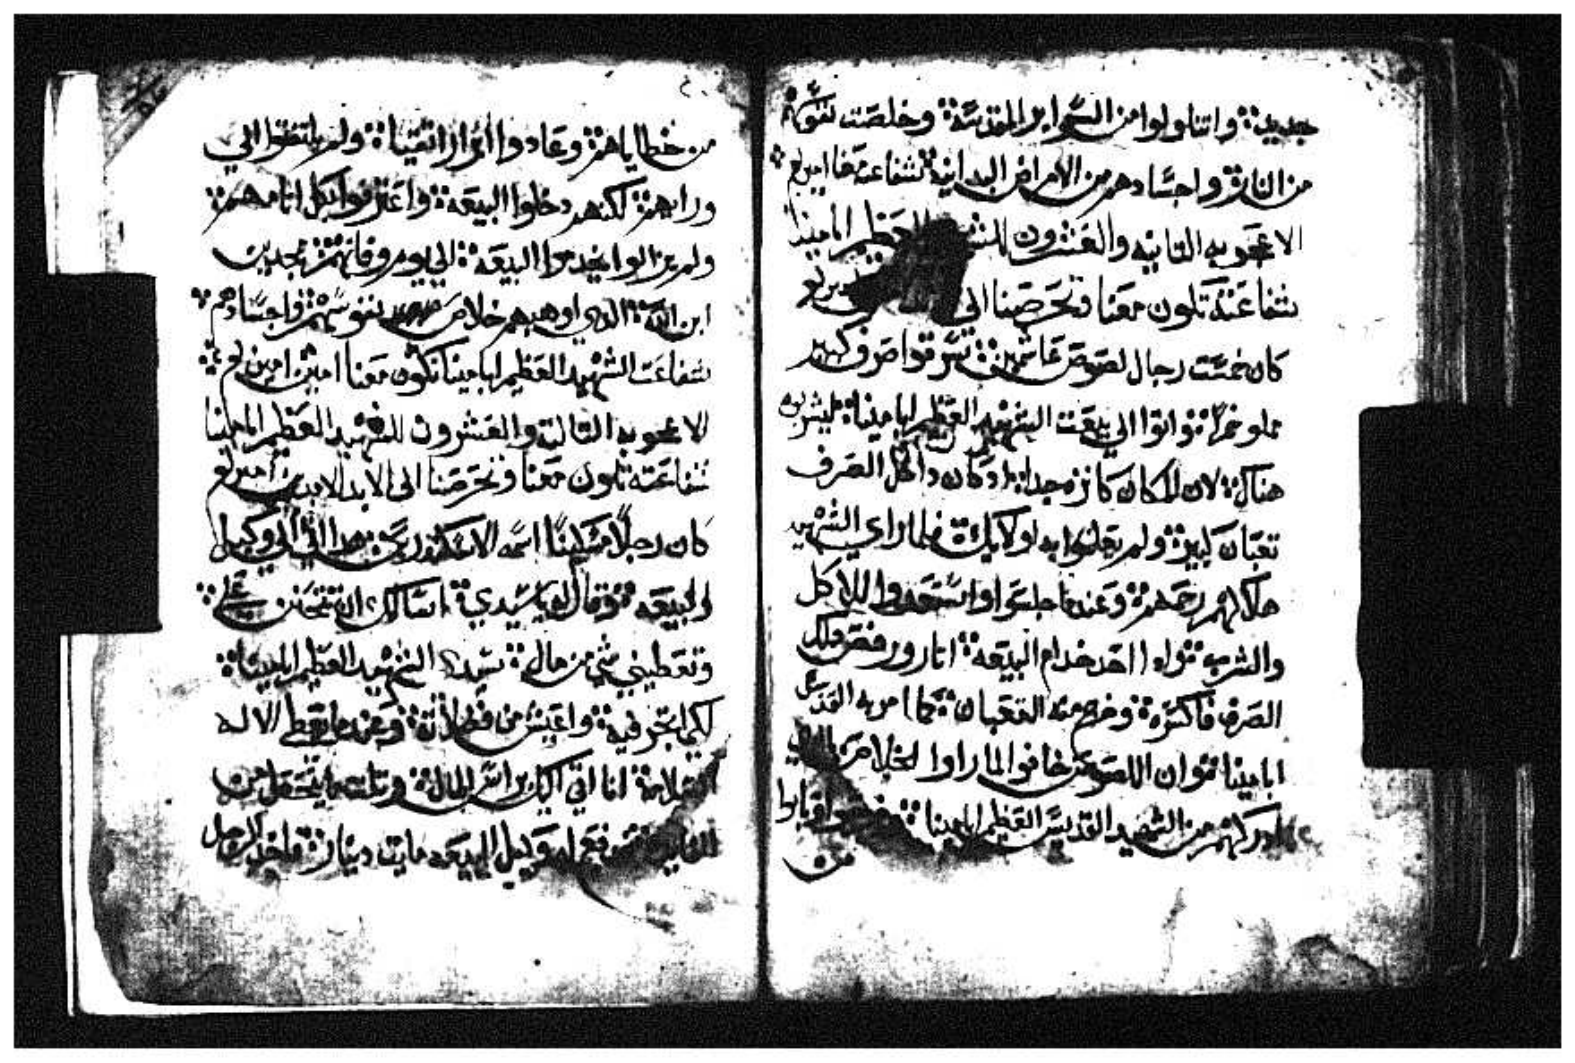 جديده وانناولوا من السراير المقدسة وخلصت نفوسهم
من النار واجسادهم من الامراض البدانية شفاعته معنا امين
الاعجوبه التانيه والعشرون للشهيد العظيم ابامينا
شفاعته تكون معنا وتحرصنا الى
كان خمست رجال لصوص سرقوا صروف كبير
مملو خمراً واتوا الي بيعت الشهيد العظيم ابامينا ليشربوه
هناك لان المكان كان نزه جدا وكان داخل الصرف
تعبان كبير ولم يعلموا به اولايك فلما راي الشهيد
هلاكهم رحمهم وعندما جلسوا واستعدوا للاكل
والشرب تراوا احد خدام البيعه اتا ورفص ذلك
الصرف فاكسره وخرج منه التعبان كما امر به القديس
ابامينا ثم ان اللصوص خافوا لما راوا الخلاص الذي
ادركهم من الشهيد القديس العظيم ابامينا
من
من خطاياهم وعادوا ابرار اتقياء ولم يلتفتوا الي
وراهم لكنهم دخلوا البيعه واعترفوا بكل اتامهم
ولم يزالوا يخدموا البيعه الي يوم وفاتهم مجدين
ابن الله الدي اوهبهم خلاص نفوسهم واجسادهم
شفاعت الشهيد العظيم ابامينا تكون معنا امين امين
الاعجوبه التالته والعشرون للشهيد العظيم ابامينا
شفاعته تكون معنا وتحرصنا الى الابد الابدين امين
كان رجلاً مسكيناً اسمه الاسكندري هدا اتي الي وكيل
البيعه وقال له يا سيدي اسالك ان تتحنن علي
وتعطيني شي من مال سيدي الشهيد العظيم ابامينا
لكيما اتجر فيه واعيش من فضلاته وعندما يعطي الاله
السلامة انا اتي اليك براس المال وتلت ما يتحصل من
الفايده فدفع له وكيل البيعه مايت دينار فاخد الرجل